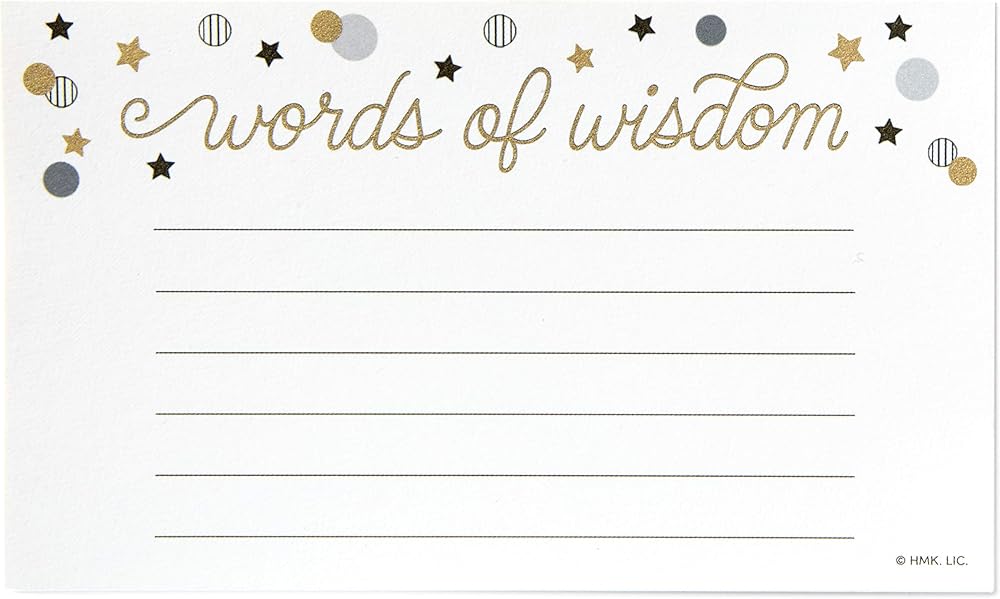 words of wisdom
© HMK. LIC.